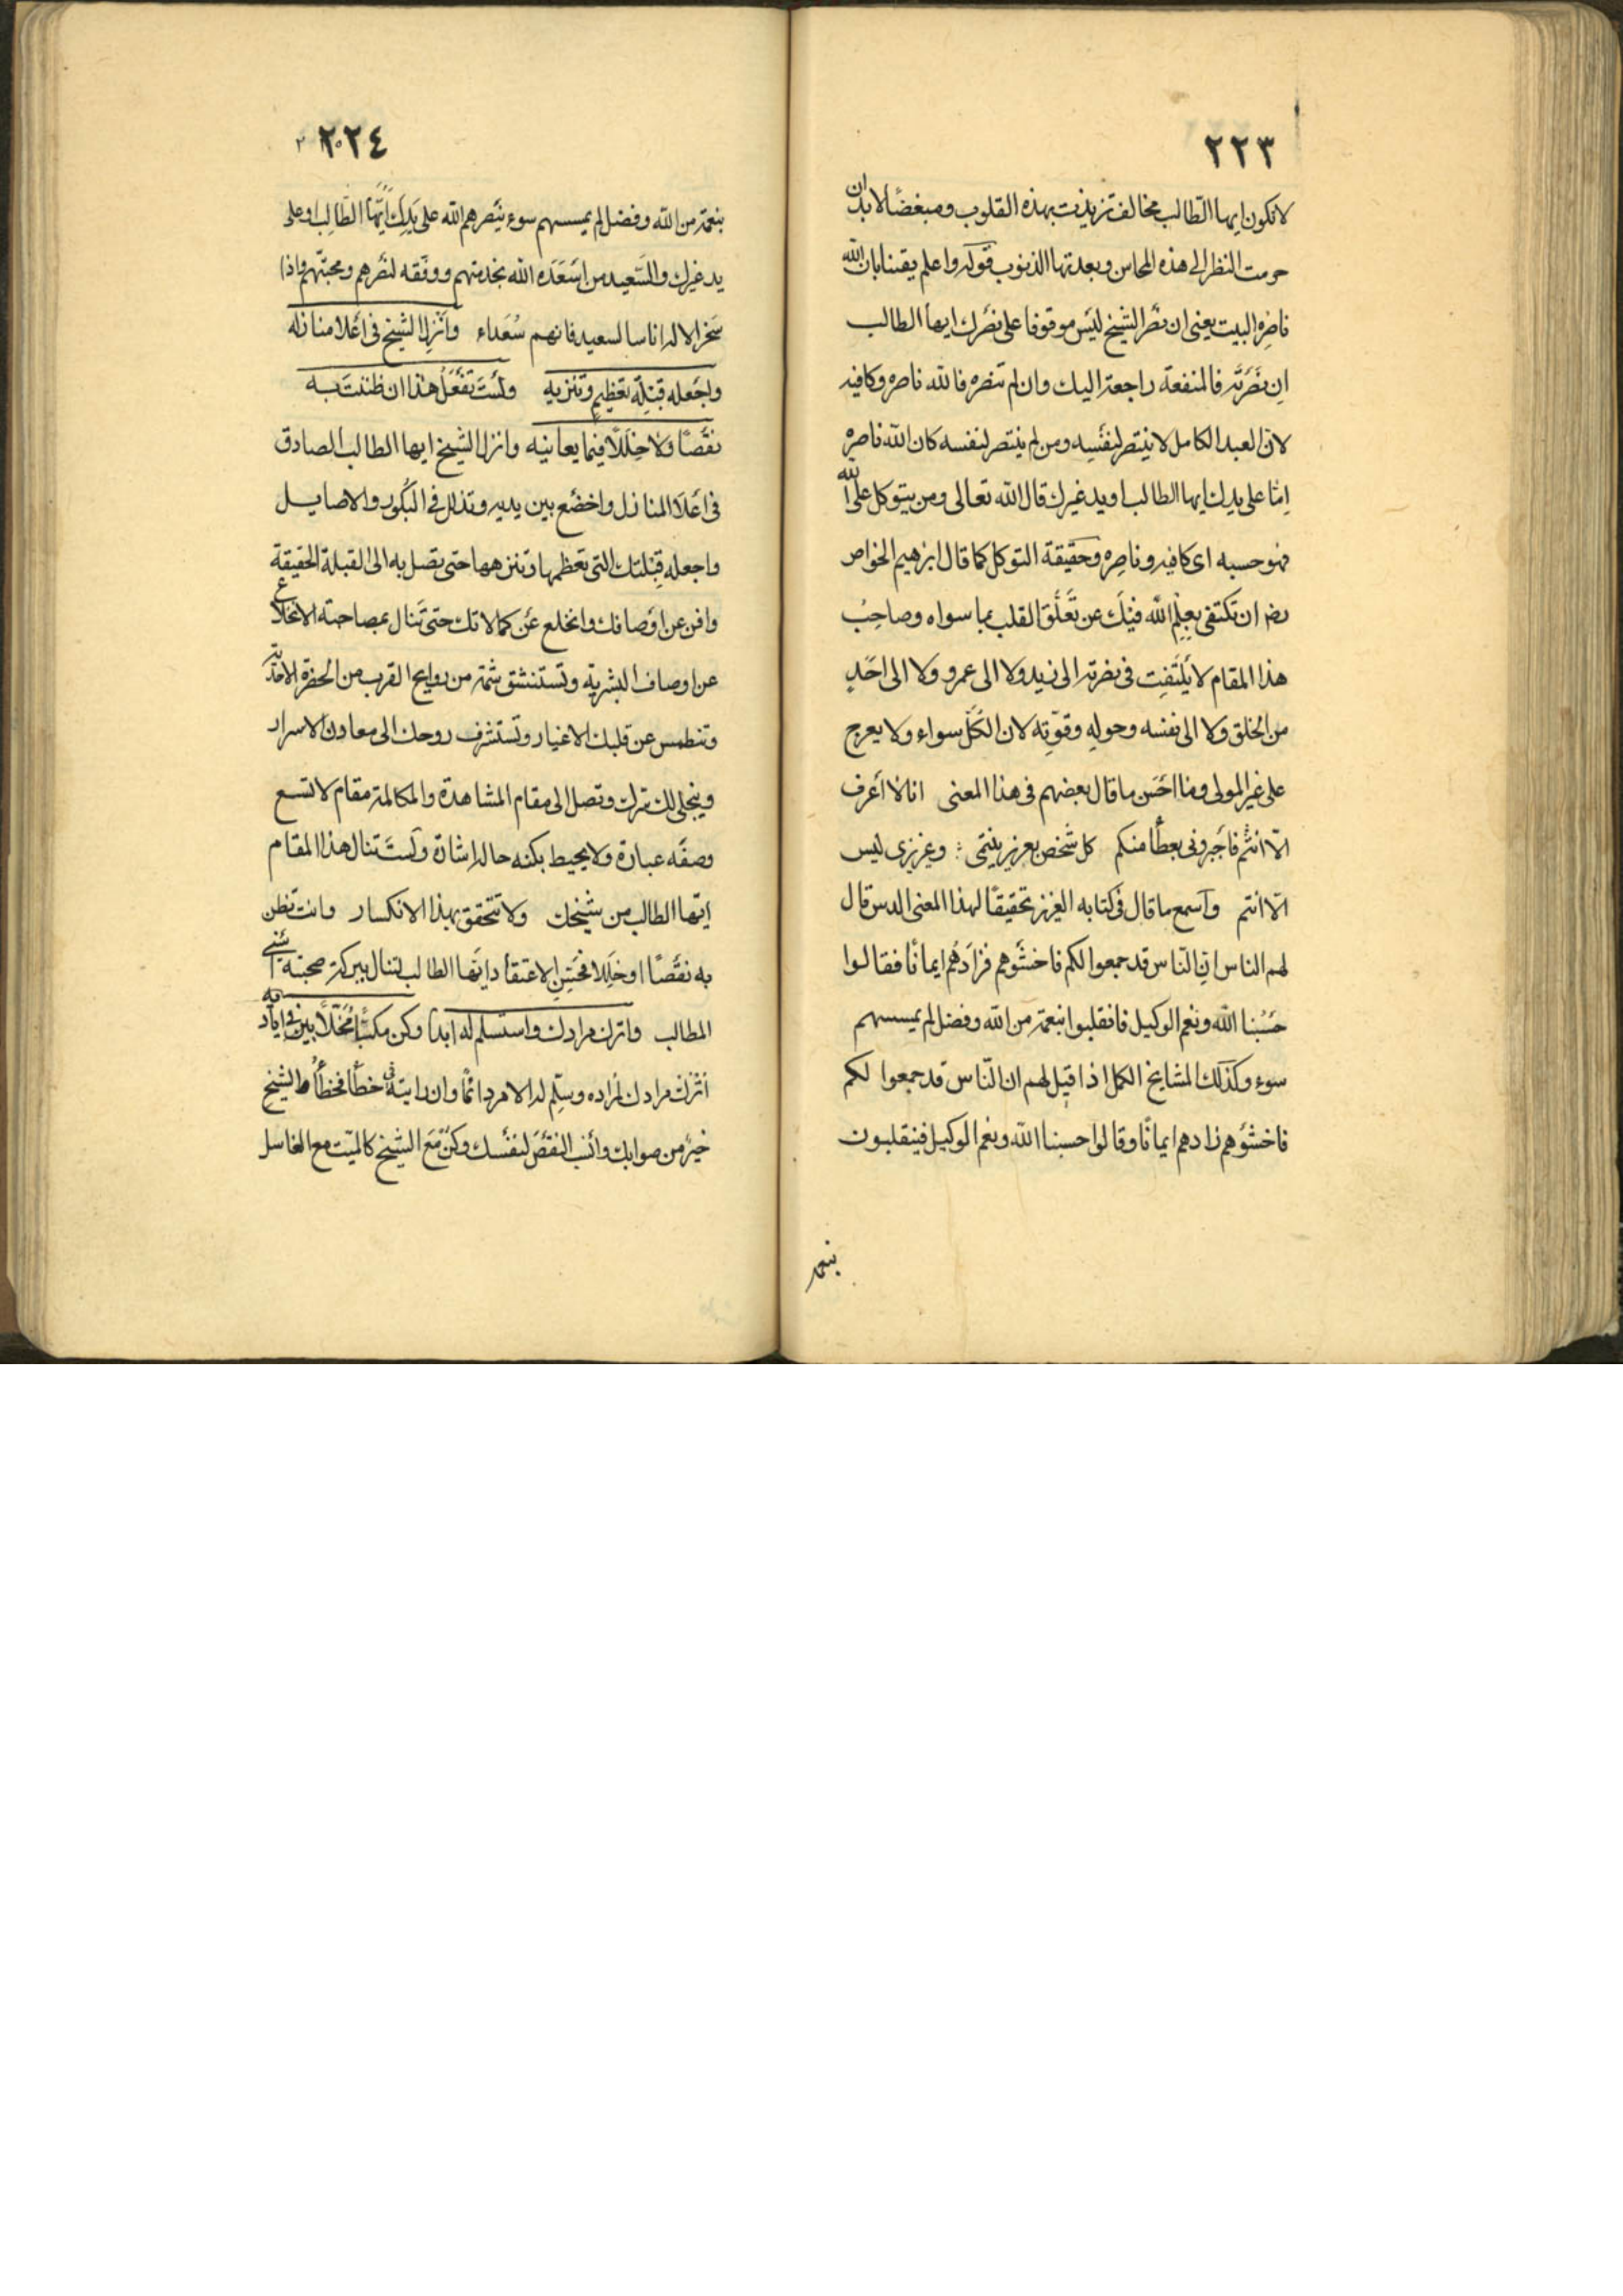 ٢٢٣
لا تكون ايها الطالب مخالف تزيذت بهذه القلوب ومبغضًا لابد ان
حرمت النظر الى هذه المحاسن وبعدتها الذنوب قوله واعلم يقينا بان الله
ناصره البيت يعني ان نصر الشيخ ليس موقوفا على نصرك ايها الطالب
ان نصرته فالمنفعة راجعة اليك وان لم تنصره فالله ناصره وكافيه
لان العبد الكامل لا ينتصر لنفسه ومن لم ينتصر لنفسه كان الله ناصره
اما على يدك ايها الطالب او يد غيرك قال الله تعالى ومن يتوكل على الله
فهو حسبه اى كافيه وناصره وحقيقة التوكل كما قال ابرهيم الخواص
رضه ان تكتفي بعلم الله فيك عن تعلق القلب بما سواه وصاحب
هذا المقام لا يلتفت في نصرته الى زيد ولا الى عمرو ولا الى احد
من الخلق ولا الى نفسه وحوله وقوته لان الكل سواء ولا يعرج
على غير المولى وما احسن ما قال بعضهم في هذا المعنى انا لا اعرف
الا انتم فاجبروني بعطا منكم كل شخص بعزيز ينتمى وعزيزى ليس
الا انتم واسمع ما قال في كتابه العزيز تحقيقًا لهذا المعنى الذين قال
لهم الناس ان الناس قد جمعوا لكم فاخشوهم فزادهم ايمانًا فقالوا
حسبنا الله ونعم الوكيل فانقلبوا بنعمة من الله وفضل لم يمسسهم
سوء وكذلك المشايخ الكمل اذا قيل لهم ان الناس قد جمعوا لكم
فاخشوهم زادهم ايمانًا وقالوا حسبنا الله ونعم الوكيل فينقلبون
بنعمة
٢٢٤
بنعمة من الله وفضل لم يمسسهم سوء ينصرهم الله على يدك ايها الطالب او على
يد غيرك والسعيد من اسعده الله بخدمتهم ووفقه لنصرهم ومحبتهم واذا
سخر الاله اناسا لسعيد فانهم سعداء وانزل الشيخ في اعلا منازله
واجعله قبلة تعظيم وتنزيه ولست تفعل هذا ان ظننت به
نقصًا ولا خللًا فيما يعانيه وانزل الشيخ ايها الطالب الصادق
في اعلا المنازل واخضع بين يديه وتذلل في البكور والاصايل
واجعله قبلتك التي تعظمها وتنزهها حتى تصل به الى القبلة الحقيقة
وافن عن اوصافك وانخلع عن كمالاتك حتى تنال بمصاحبته الانخلاع
عن اوصاف البشرية وتستنشق شمة من روايح القرب من الحضرة الاحدية
وتنطمس عن قلبك الاغيار وتستشرف روحك الى معادن الاسرار
وينجلى لك سرك وتصل الى مقام المشاهدة والمكالمة مقام لا تسع
وصفه عبارة ولا يحيط بكنه حاله اشارة ولست تنال هذا المقام
ايها الطالب من شيخك ولا تتحقق بهذا الانكسار وانت تظن
به نقصًا او خللا فحسن الاعتقاد ايها الطالب لتنال ببركة صحبته اسنى
المطالب واترك مرادك واستسلم له ابدا وكن مكبًا مخلًا بين اياديه
اترك مرادك لمراده وسلم له الامر دائمًا وان رايته في خطأ فخطأ الشيخ
خير من صوابك وانسب النقص لنفسك وكن مع الشيخ كالميت مع الغاسل